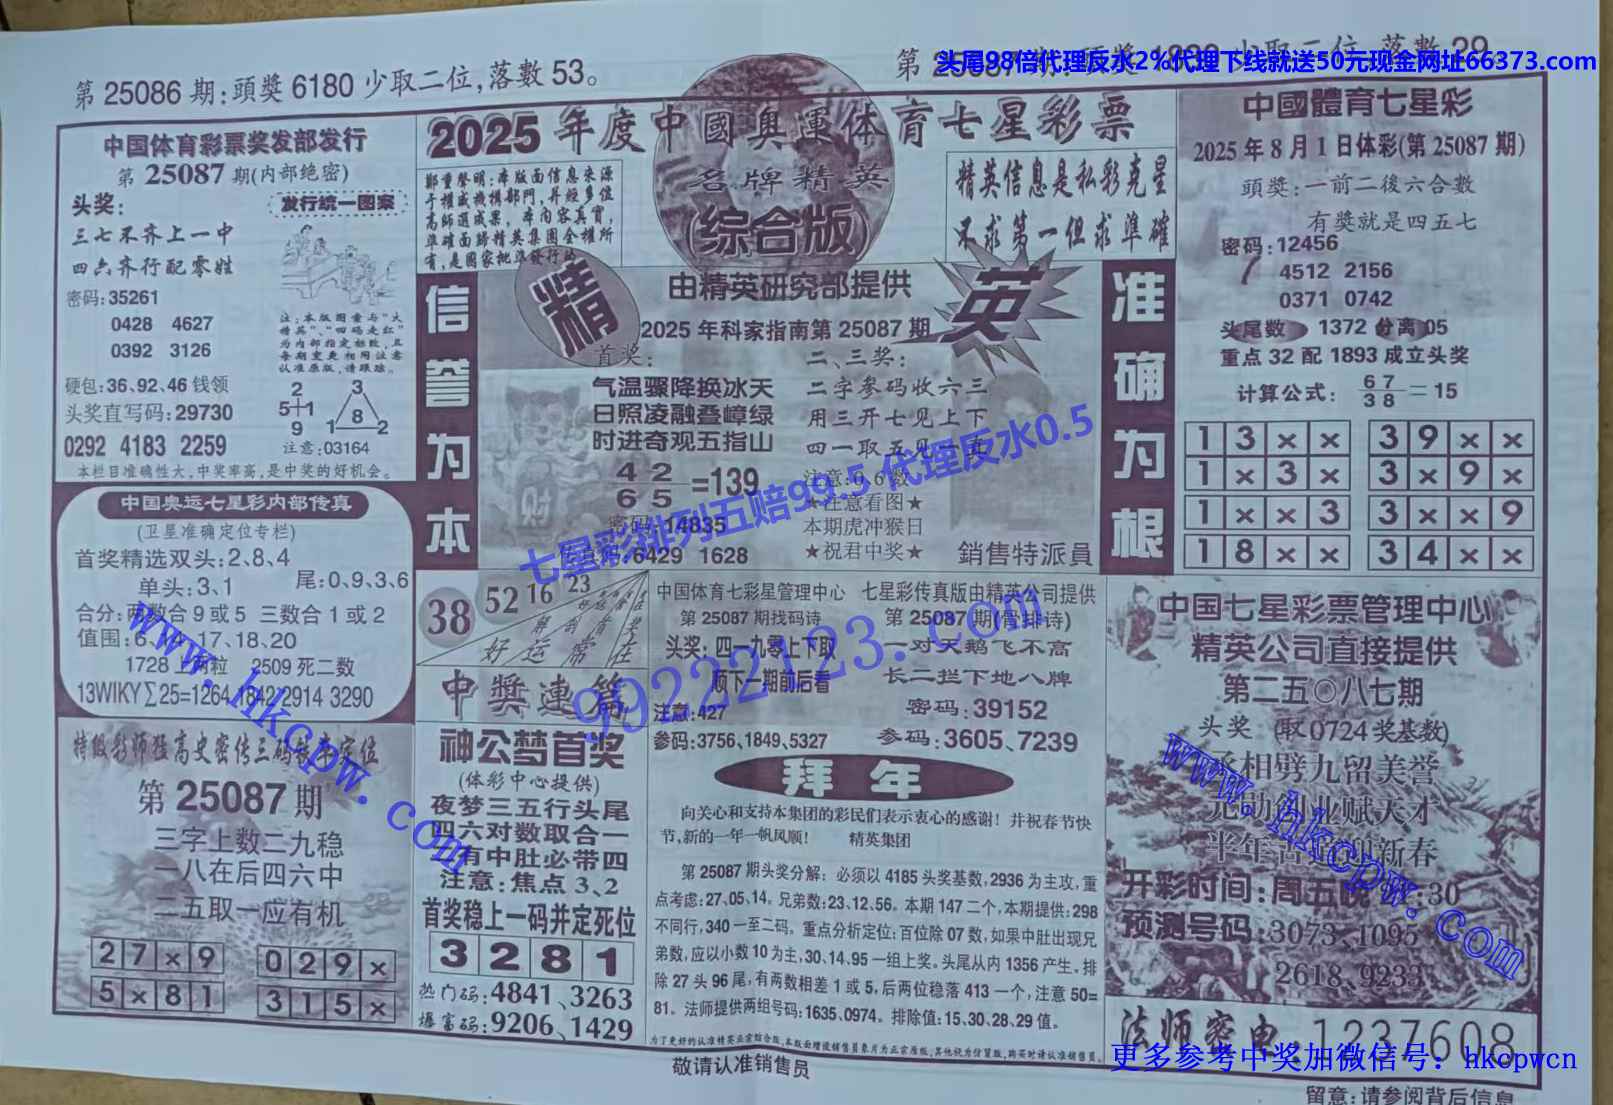 第 25086 期:頭獎 6180 少取二位,落數 53。
头尾98倍代理反水2%代理下线就送50元现金网址66373.com
中国体育彩票奖发部发行
第 25087 期(内部绝密)
头奖:
发行统一图案
三七不齐上一中
四六齐行配零姓
密码:35261
0428 4627
0392 3126
注:本版图案与“大
精英”、“四码走红”
为内部指定标致,且
每期变更相同注意
认准原版,请跟踪。
硬包:36、92、46 钱领
头奖直写码:29730
0292 4183 2259
2
5+1
9
3
8
1 2
注意:03164
本栏目准确性大,中奖率高,是中奖的好机会。
中国奥运七星彩内部传真
(卫星准确定位专栏)
首奖精选双头:2、8、4
单头:3、1
尾:0、9、3、6
合分:两数合 9 或 5 三数合 1 或 2
17、18、20
2509 死二数
13WIKY∑25=1264 1842 2914 3290
第 25087 期
三字上数二九稳
一八在后四六中
二五取一应有机
2 7 × 9
0 2 9 ×
5 × 8 1
3 1 5 ×
2025 年度中國奥運体育七星彩票
名牌精英
(综合版)
鄭重聲明:本版面信息来源
于權威機構部門,并經多位
高師選成果,本内容真實,
準確面歸精英集團全權所
有,是國家批准發行的
精英信息是私彩克星
不求第一但求準確
信誉为本
准确为根
精
英
由精英研究部提供
2025 年科家指南第 25087 期
首奖:
气温骤降换冰天
日照凌融叠嶂绿
时进奇观五指山
42
65
=139
密码:14835
6429 1628
二、三奖:
二字参码收六三
用三开七见上下
四一取五见一真
注意:6、6数
★注意看图★
本期虎冲猴日
★祝君中奖★
銷售特派員
七星彩排列五赔99.5 代理反水0.5
38
52
16
23
好运常在
中獎連篇
神公梦首奖
(体彩中心提供)
夜梦三五行头尾
四六对数取合一
有中肚必带四
注意:焦点 3、2
首奖稳上一码并定死位
3 2 8 1
热门码:4841、3263
爆富码:9206、1429
中国体育七彩星管理中心
第 25087 期找码诗
头奖:四一九零上下取
顺下一期前后看
注意:427
参码:3756、1849、5327
七星彩传真版由精英公司提供
第 25087 期(骨排诗)
一对天鹅飞不高
长二拦下地八牌
密码:39152
参码:3605、7239
拜年
向关心和支持本集团的彩民们表示衷心的感谢! 并祝春节快
节,新的一年一帆风顺! 精英集团
第 25087 期头奖分解: 必须以 4185 头奖基数,2936 为主攻,重
点考虑:27、05、14。兄弟数:23、12、56。本期 147 二个,本期提供:298
不同行,340 一至二码。重点分析定位:百位除 07 数,如果中肚出现兄
弟数,应以小数 10 为主,30、14、95 一组上奖。头尾从内 1356 产生,排
除 27 头 96 尾,有两数相差 1 或 5,后两位稳落 413 一个,注意 50=
81。法师提供两组号码:1635、0974。排除值:15、30、28、29 值。
敬请认准销售员
中國體育七星彩
2025 年 8 月 1 日体彩(第 25087 期)
頭獎:一前二後六合數
有獎就是四五七
密码:12456
4512 2156
0371 0742
头尾数 1372 分离 05
重点 32 配 1893 成立头奖
计算公式: 67/38=15
1 3 × ×
3 9 × ×
1 × 3 ×
3 × 9 ×
1 × × 3
3 × × 9
1 8 × ×
3 4 × ×
中国七星彩票管理中心
精英公司直接提供
第二五〇八七期
头奖 (取 0724 奖基数)
丞相劈九留美誉
元勋创业赋天才
开彩时间:周五晚
:30
预测号码:3073、1095
2618、9233
法师密电
1237608
留意:请参阅背后信息
www.hkcpw.com
99222123.com
www.hkcpw.com
更多参考中奖加微信号: hkcpwcn